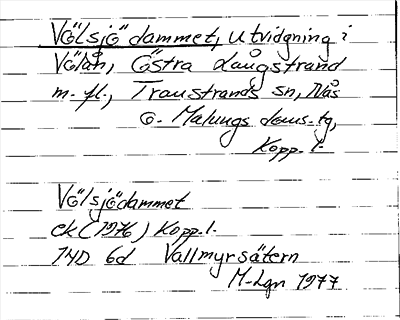 Völsjödammet, utvidgning i
Völån, Östra Långstrand
m.fl., Transtrands sn, Nås
o. Malungs doms.tg,
Kopp. l.
Völsjödammet
ek (1976) Kopp. l.
14D 6d Vallmyrsätern
M-Lgn 1977